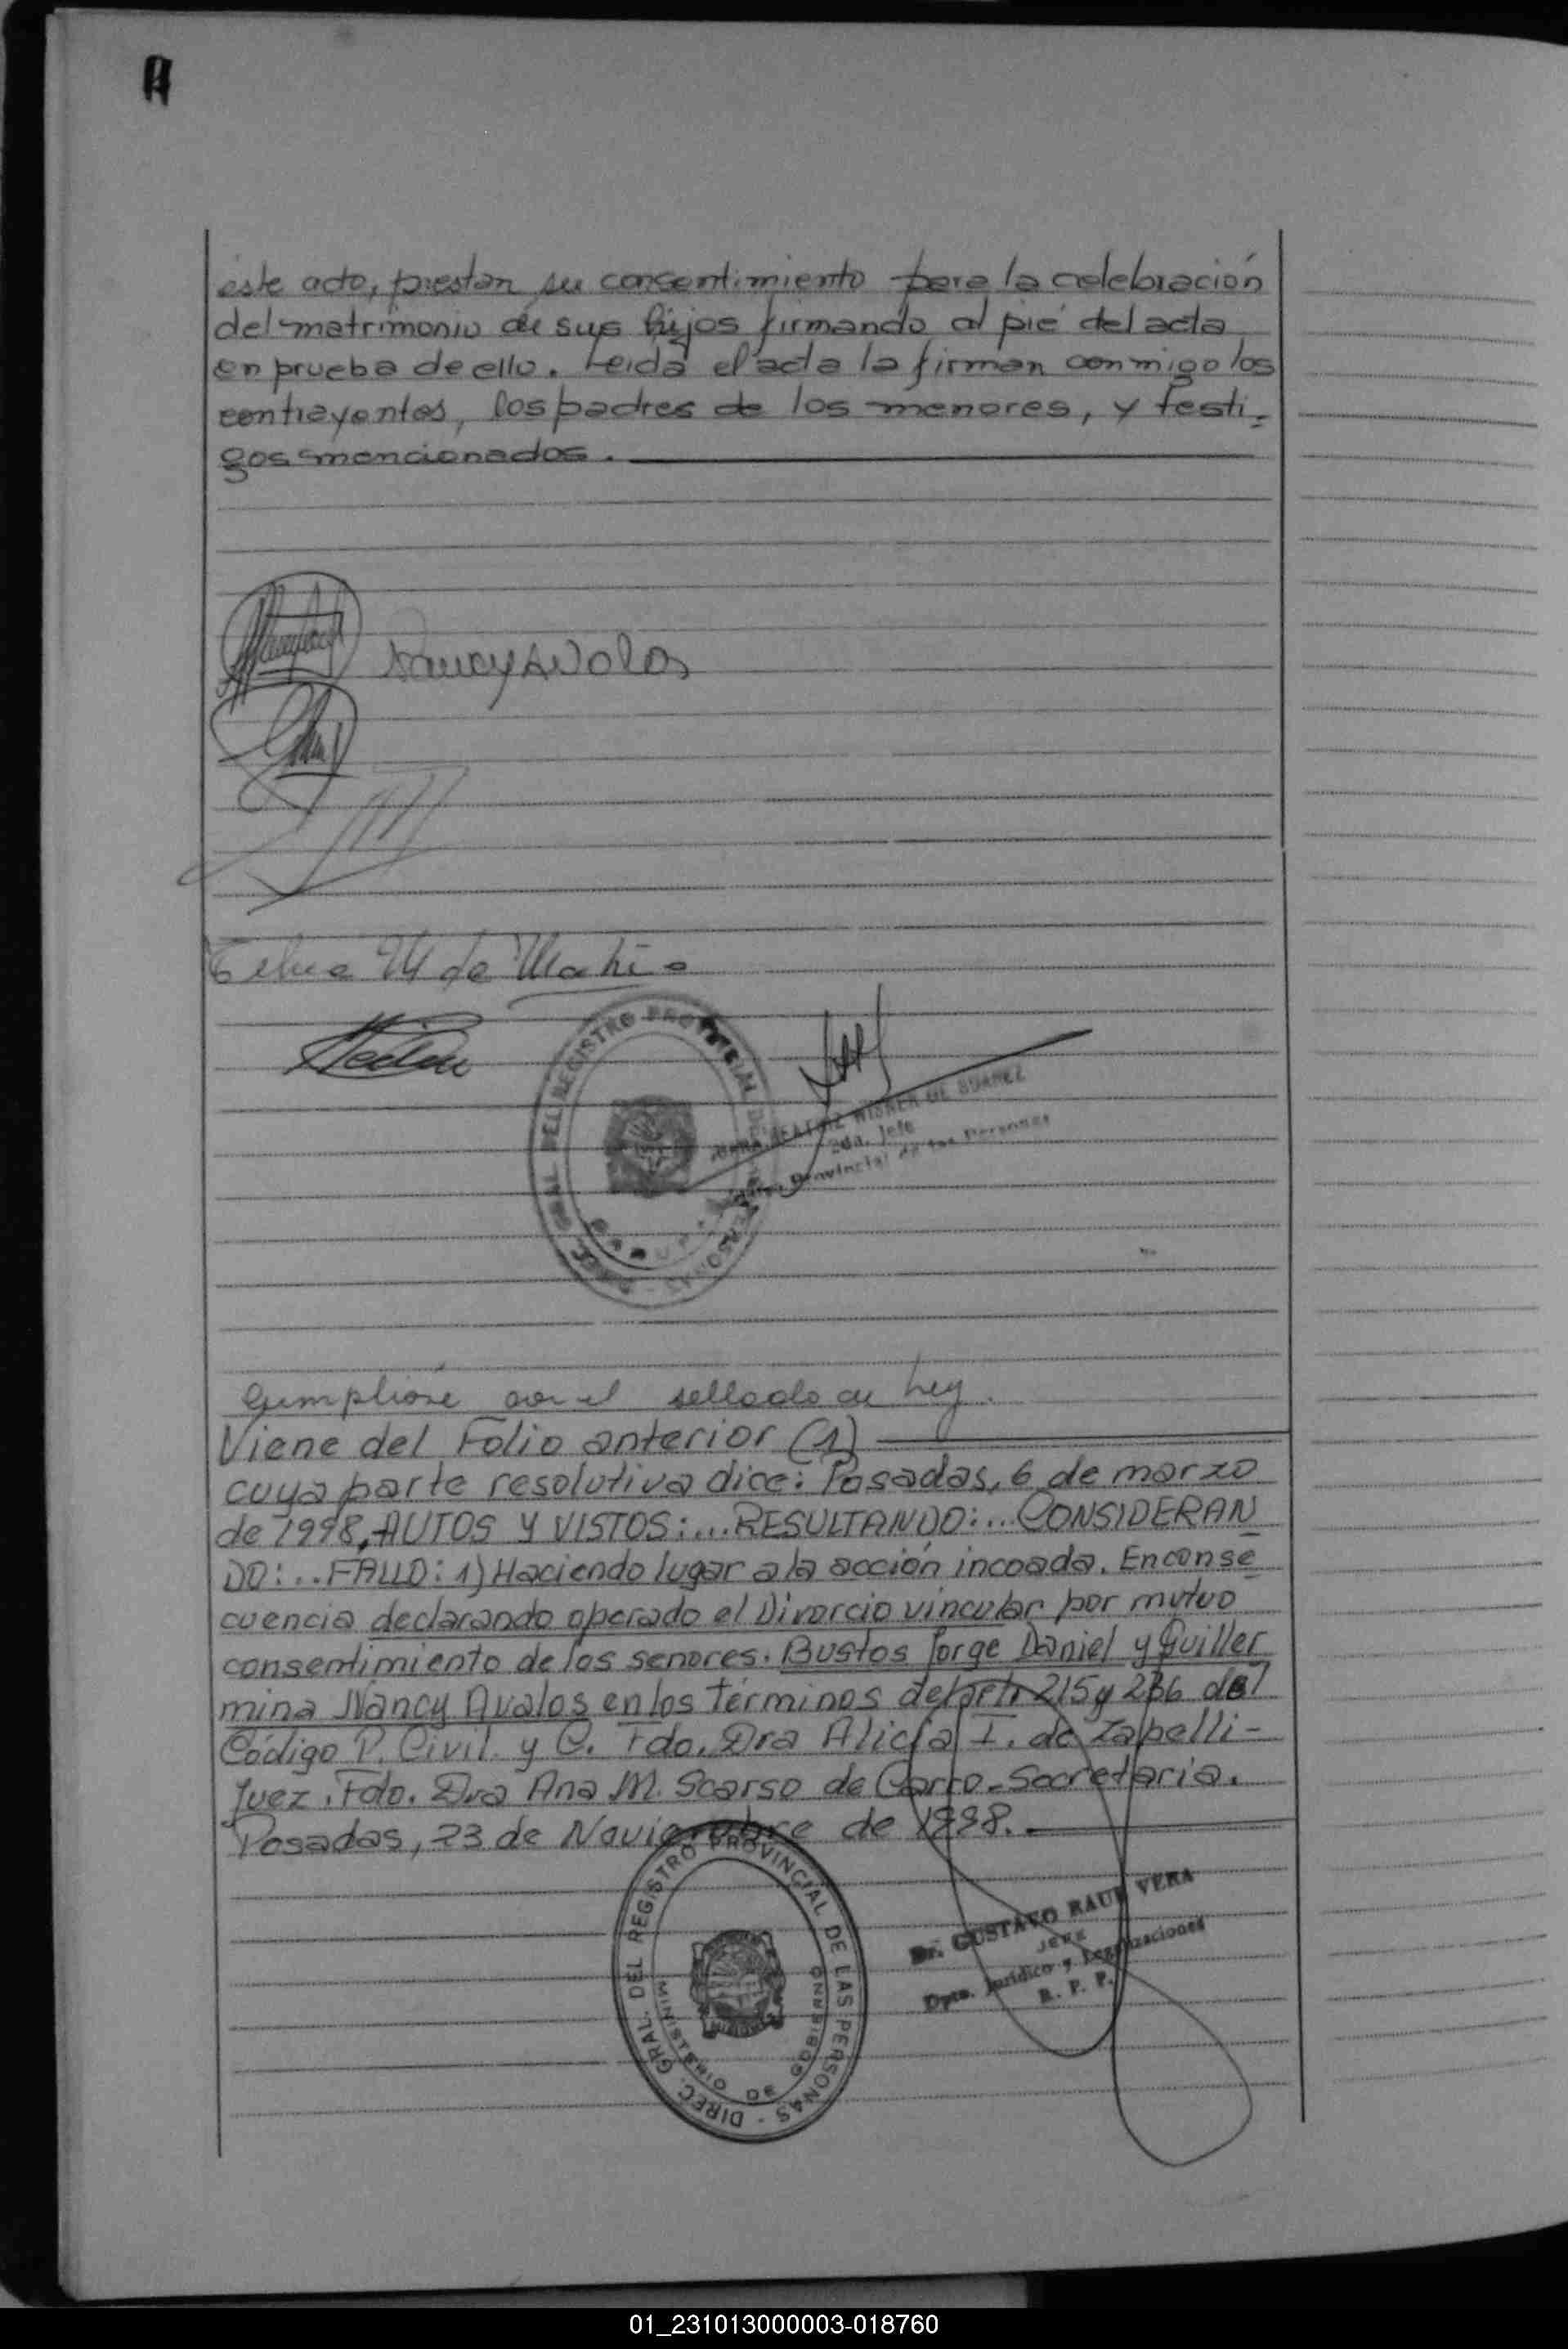 este acto, prestan su consentimiento para la celebración
del matrimonio de sus hijos firmando al pié del acta
en prueba de ello. Leida el acta la firman conmigo los
contrayentes, los padres de los menores, y testi-
gos mencionados.
Nancy Avalos
de
DIREC. GRAL. DEL REGISTRO PROVINCIAL DE LAS PERSONAS
BEATRIZ DE SUAREZ
2da. Jefe
Provincial de las Personas
Cumpliose con el sellado de Ley.
Viene del Folio anterior (1)
cuya parte resolutiva dice: Posadas, 6 de marzo
de 1998, AUTOS Y VISTOS:... RESULTANDO:... CONSIDERAN
DO:... FALLO: 1) Haciendo lugar a la acción incoada. En conse
cuencia declarando operado el Divorcio vincular por mutuo
consentimiento de los senores. Bustos Jorge Daniel y Guiller
mina Nancy Avalos en los términos del art. 215 y 236 del
Código P. Civil y C. Fdo. Dra Alicia I. de Zapelli-
Juez. Fdo. Dra Ana M. Scarso de Carro-Secretaria.
Posadas, 23 de Noviembre de 1998.
DIREC. GRAL. DEL REGISTRO PROVINCIAL DE LAS PERSONAS -
MINISTERIO DE GOBIERNO
MISIONES
Dr. GUSTAVO RAUL VERA
JEFE
Dpto. Jurídico y Legalizaciones
R. P. P.
01_231013000003-018760